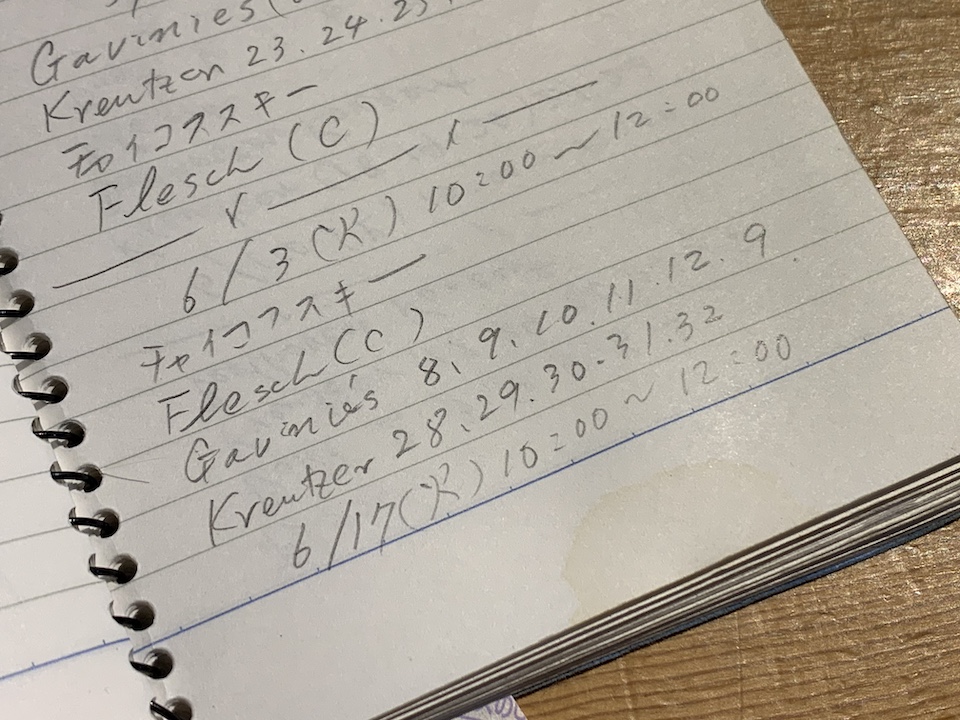 Gavinies(
Kreutzer 23.24.25
チャイコフスキー
Flesch (C)
6/3(火) 10:00~12:00
チャイコフスキー
Flesch (C)
Gaviniés 8、9.10.11.12.9
Kreutzer 28、29.30.31.32
6/17(火) 10:00~12:00